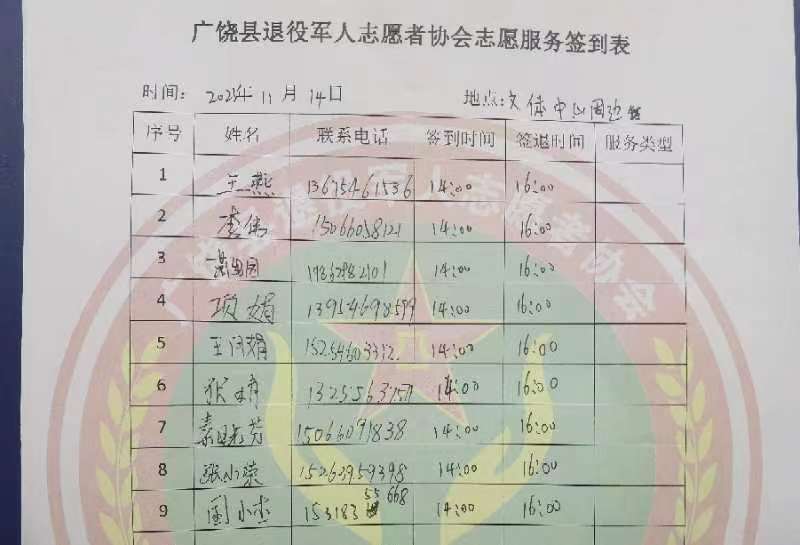 广饶县退役军人志愿者协会志愿服务签到表
时间： 2021年11月14日 地点：文体中心周边
序号 姓名 联系电话 签到时间 签退时间 服务类型
1 王燕 13675461536 14:00 16:00
2 李伟 15066058121 14:00 16:00
3 14:00 16:00
4 项娟 13954698599 14:00 16:00
5 王 娟 15254603312 14:00 16:00
6 14:00 16:00
7 芳 15066091838 14:00 16:00
8 张小 15263959398 14:00 16:00
9 周小杰 14:00 16:00
广饶县退役军人志愿者协会